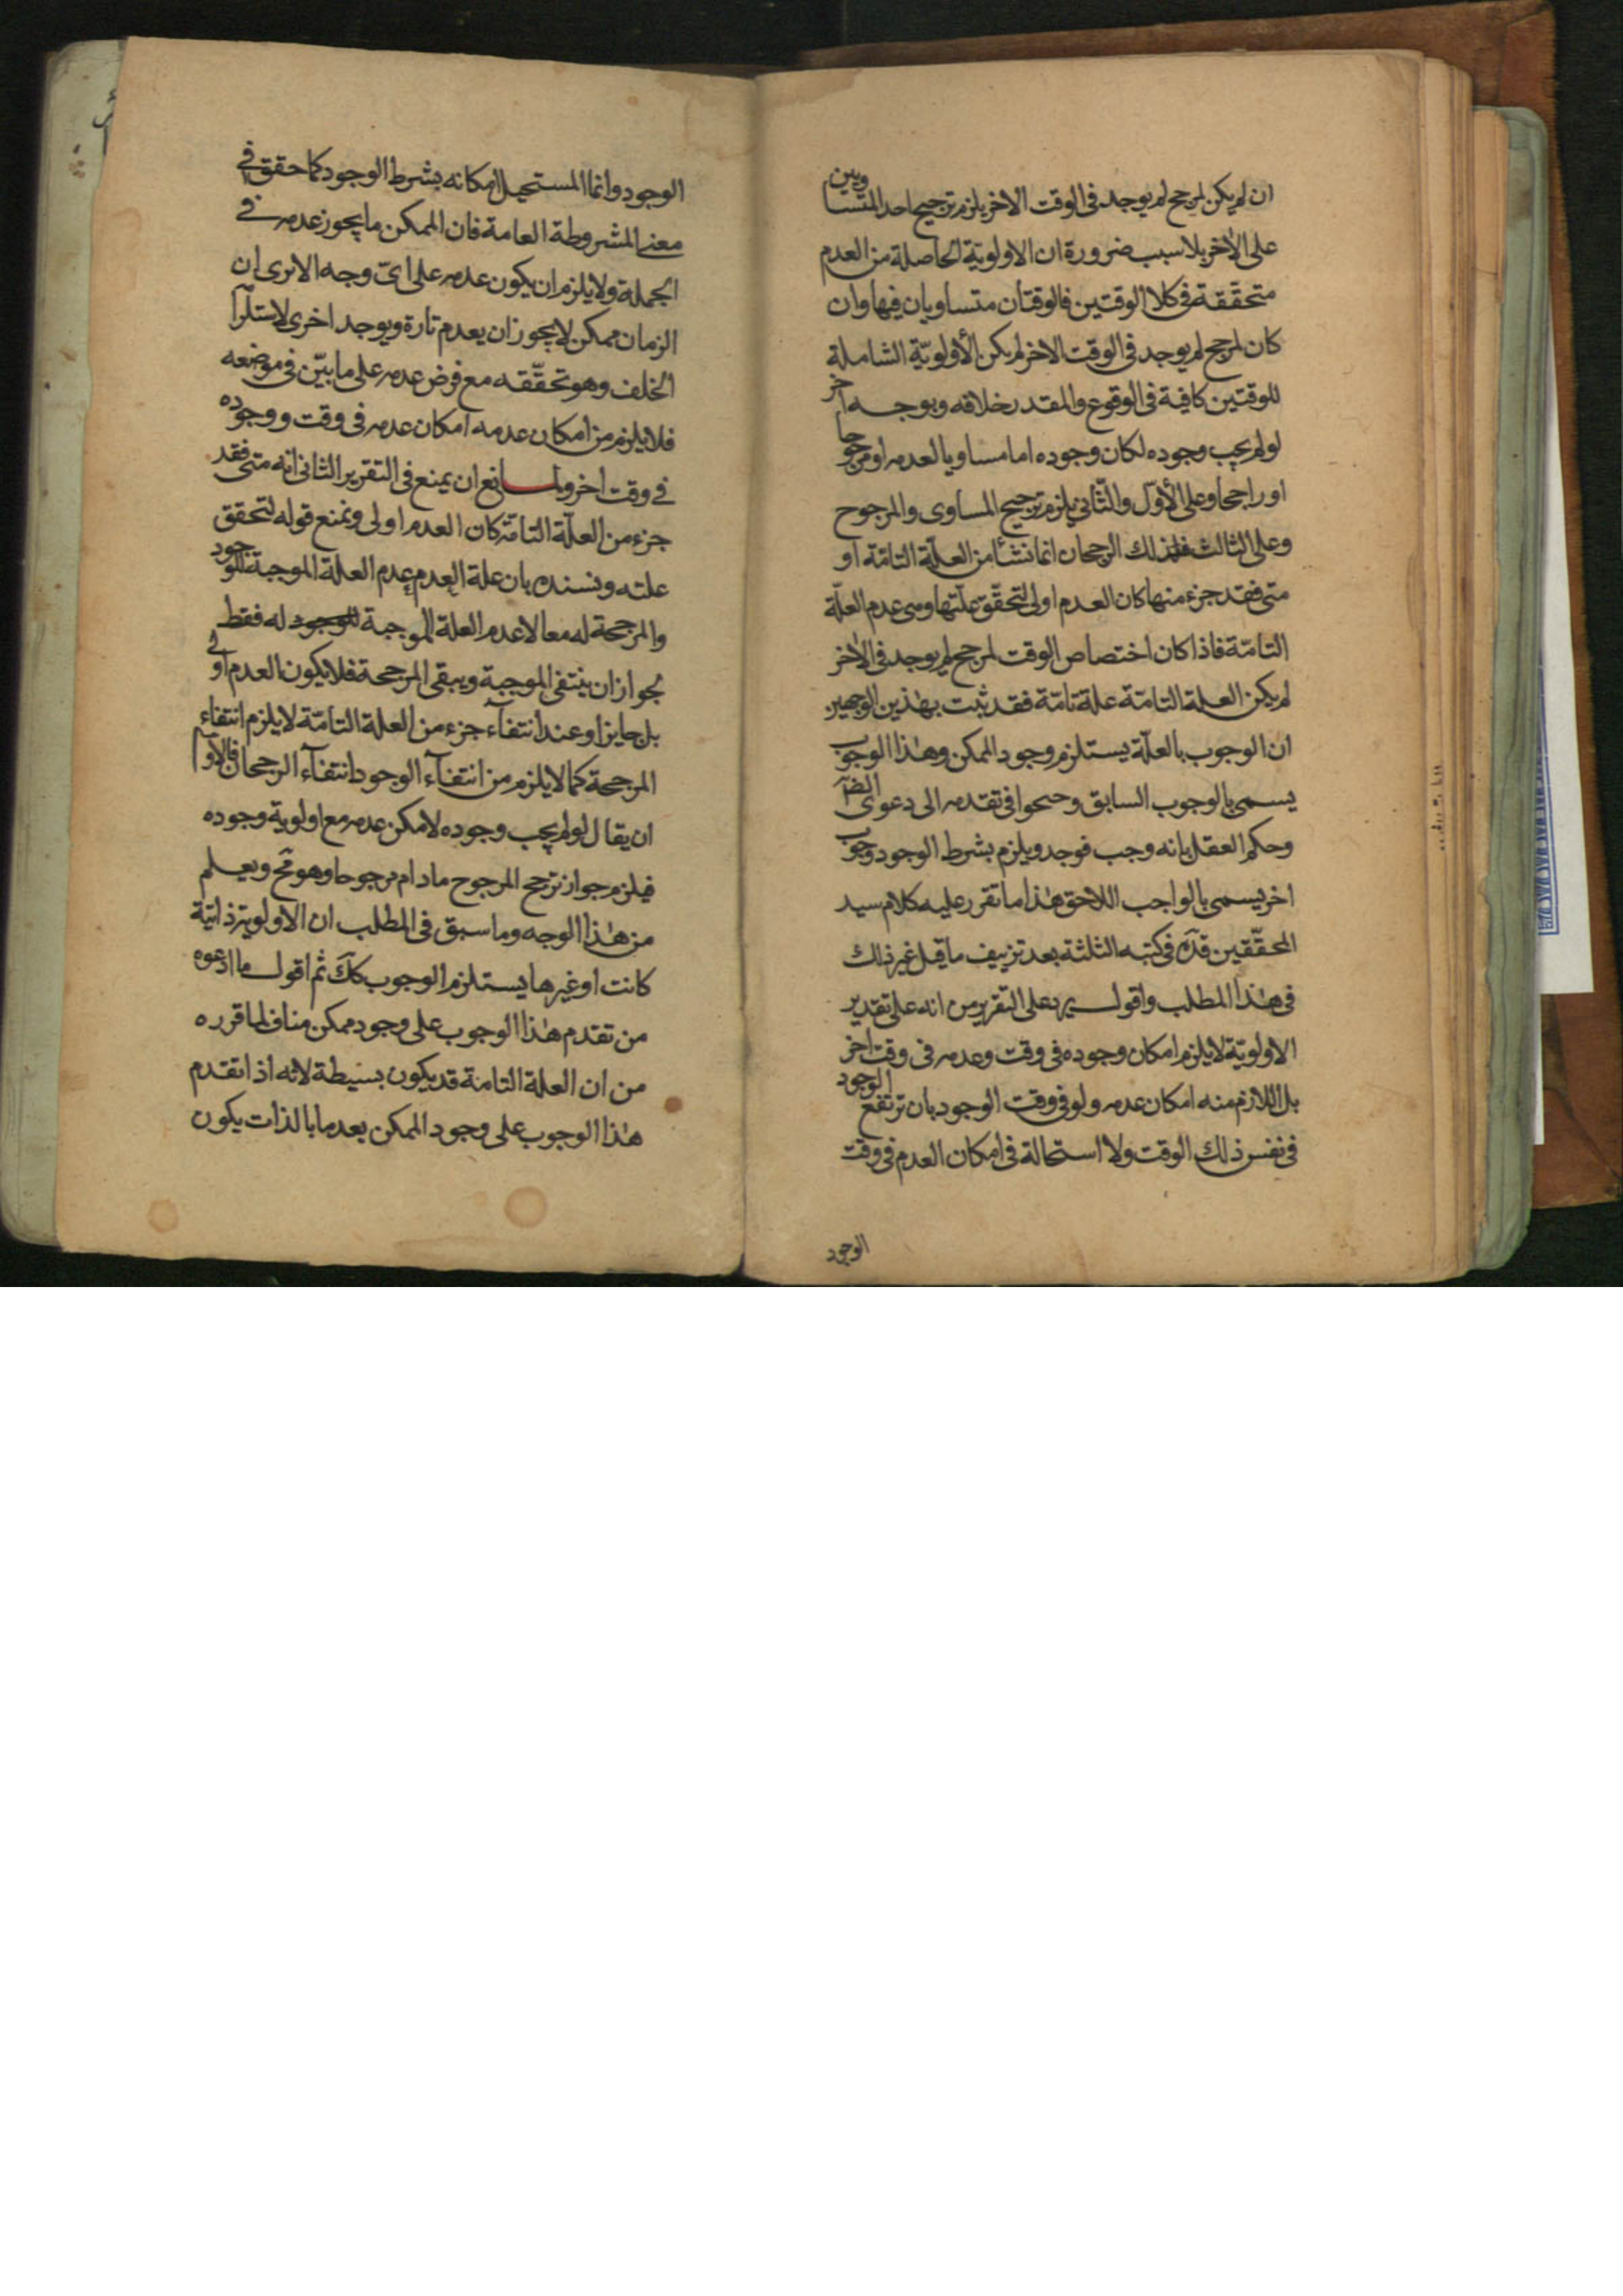 ان لم يكن لمرجح لم يوجد فى الوقت الاخر يلزم ترجيح احد المتساويين
على الاخر بلا سبب ضرورة ان الاولويّة الحاصلة من العدم
متحقّقة فى كلا الوقتين فالوقتان متساويان فيها وان
كان لمرجح لم يوجد فى الوقت الاخر لم يكن الأولويّة الشاملة
للوقتين كافية فى الوقوع والمقدر خلافه وبوجه اخر
لو لم يجب وجوده لكان وجوده اما مساويا لعدمه او مرجوحا
او راجحا وعلى الأوّل والثّاني يلزم ترجيح المساوى والمرجوح
وعلى الثالث فلذلك الرجحان انما نشأ من العلّة التامّة او
متى فقد جزء منها كان العدم اولى لتحقّق علّتها وهى عدم العلّة
التامّة فاذا كان اختصاص الوقت لمرجح لم يوجد فى الاخر
لم يكن العلة التامّة علة تامّة فقد ثبت بهذين الوجهين
ان الوجوب بالعلّة يستلزم وجود الممكن وهذا الوجوب
يسمى بالوجوب السابق و فى تقدمه الى دعوى الضرآ
وحكم العقل بانه وجب فوجد ويلزم بشرط الوجود وجوب
اخر يسمى بالواجب اللاحق هذا ما تقرر عليه كلام سيد
المحقّقين قدّه فى كتبه الثلثة بعد تزييف ما قيل غير ذلك
فى هذا المطلب واقول يرد على التقريرين انه على تقدير
الاولويّة لا يلزم امكان وجوده فى وقت وعدمه فى وقت اخر
بل اللازم منه امكان عدمه ولو فى وقت الوجود بان ترتفع الوجود
فى نفس ذلك الوقت ولا استحالة فى امكان العدم فى وقت
الوجود
الوجود وانما المستحيل امكانه بشرط الوجود كما حقق فى
معنى المشروطة العامة فان الممكن ما يجوز عدمه فى
الجملة ولا يلزم ان يكون عدمه على اىّ وجه الا ترى ان
الزمان ممكن لا يجوز ان يعدم تارة ويوجد اخرى لاستلزآ
الخلف وهو تحقّقه مع فرض عدمه على ما بيّن فى موضعه
فلا يلزم من امكان عدمه امكان عدمه فى وقت ووجوده
فى وقت اخر ولمانع ان يمنع فى التقرير الثانى انه متى فقد
جزء من العلّة التامّة كان العدم اولى ونمنع قوله لتحقق
علته ونسنده بان علة العدم عدم العلة الموجبة للوجود
والمرجحة له معا لا عدم العلة الموجبة للوجود له فقط
لجواز ان ينتفى الموجبة ويبقى المرجحة فلا يكون العدم اولى
بل جايزا وعند انتفآء جزء من العلة التامّة لا يلزم انتفاء
المرجحة كما لا يلزم من انتفآء الوجود انتفآء الرجحان فالاولى
ان يقال لو لم يجب وجوده لامكن عدمه مع اولوية وجوده
فيلزم جواز ترجح المرجوح مادام مرجوحا وهو مح ويعلم
من هذا الوجه وما سبق فى المطلب ان الاولوية ذاتية
كانت او غيرها يستلزم الوجوب كك ثم اقول ما ادعوه
من تقدم هذا الوجوب على وجود ممكن مناف لما قرره
من ان العلة التامة قد يكون بسيطة لانه اذا تقدم
هذا الوجوب على وجود الممكن بعدما بالذات يكون